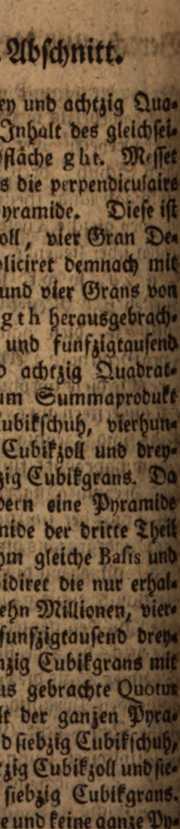 Abschnitt.
ey und achtzig Qua-
Inhalt des gleichsei-
fläche ght. Messet
s die perpendiculaire
yramide. Diese ist
oll, vier Gran De-
liciret demnach mit
und vier Grans von
gth herausgebrach-
und funfzigtausend
achtzig Quadrat-
um Summaprodukt
ubikschuh, vierhun-
Cubikzoll und drey-
zig Cubikgrans. Da
dern eine Pyramide
mide der dritte Theil
hin gleiche Basis und
idiret die nur erhal-
ehn Millionen, vier-
funfzigtausend drey-
nzig Cubikgrans mit
us gebrachte Quotus
lt der ganzen Pyra-
d siebzig Cubikschuh,
zig Cubikzoll und sie-
siebzig Cubikgrans.
e und keine ganze Py-